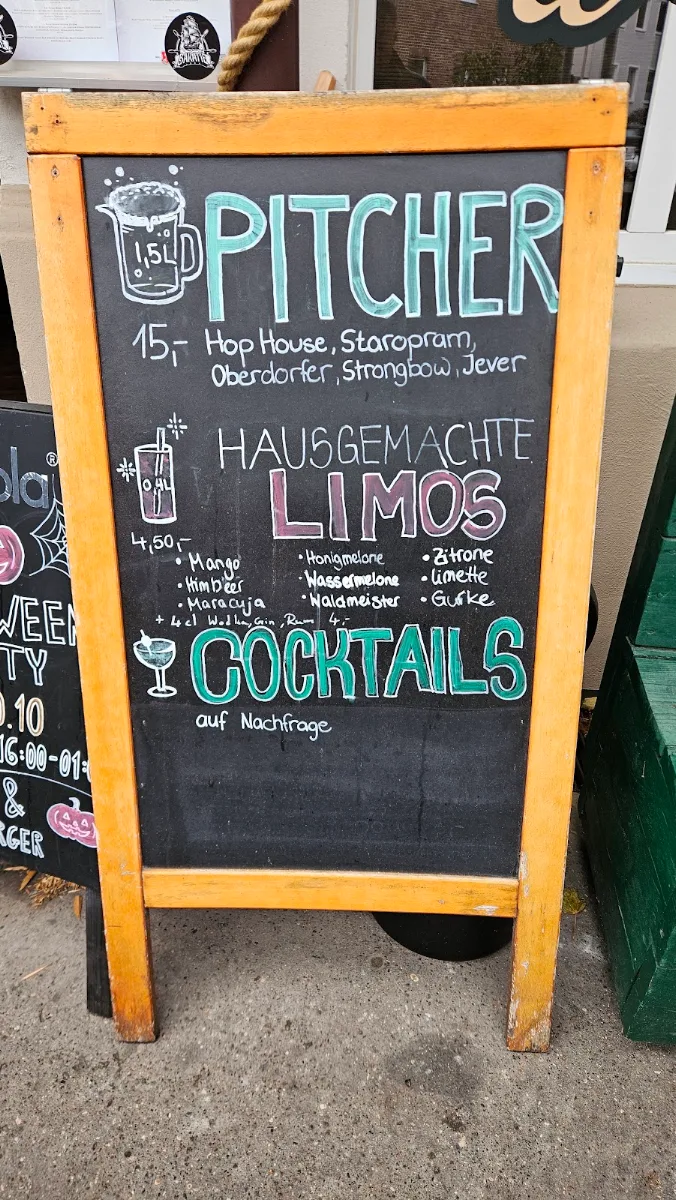 PITCHER
1,5L
15,- Hop House, Staropram,
Oberdorfer, Strongbow, Jever
HAUSGEMACHTE
LIMOS
0,4L
4,50,-
• Mango • Honigmelone • Zitrone
• Himb'eer • Wassermelone • Limette
• Maracuja • Waldmeister • Gurke
+ 4 cl Wodka, Gin, Rum 4,-
COCKTAILS
auf Nachfrage
ola®
WEEN
TY
.10
16:00-01:
&
RGER